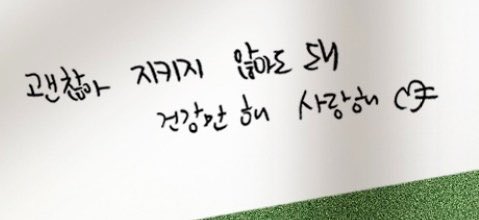 괜찮아 지키지 않아도 돼
건강만 해 사랑해